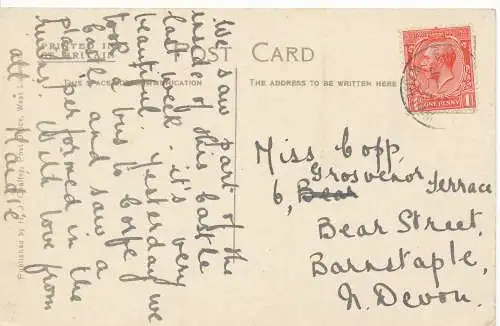 PRINTED IN
GT. BRITAIN
POST CARD
THIS SPACE COMMUNICATION
THE ADDRESS TO BE WRITTEN HERE
ONE PENNY
We saw part of the
inside of this castle
last week - it's very
beautiful. Yesterday we
took bus to Corfe
Castle and saw a
play performed in the
ruins. With love from
all. Maidie
Miss Copp,
Grosvenor Terrace
6, Bear
Bear Street,
Barnstaple,
N. Devon.
Published by